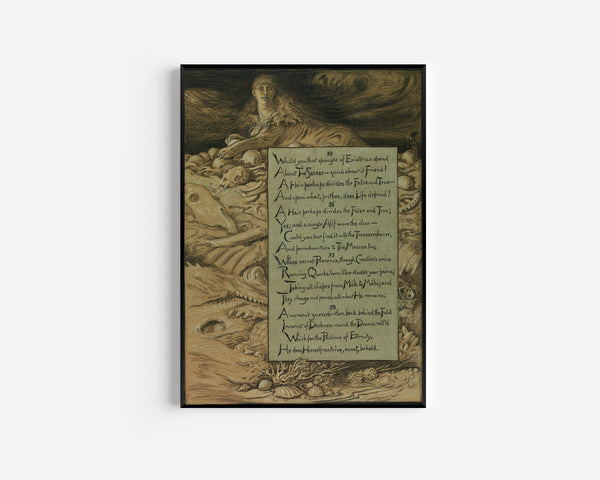 55
Would you that spangle of Existence spend
About The Secret — quick about it Friend!
A Hair perhaps divides the False and True —
And upon what, prithee, does Life depend?
56
A Hair perhaps divides the False and True;
Yes; and a single Alif were the clue —
Could you but find it — to the Treasure-house,
And peradventure to The Master too;
57
Whose secret Presence, through Creation's veins
Running Quicksilver-like eludes your pains;
Taking all shapes from Máh to Máhi; and
They change and perish all — but He remains;
58
A moment guess'd — then back behind the Fold
Immerst of Darkness round the Drama roll'd
Which for the Pastime of Eternity,
He does Himself contrive, enact, behold.